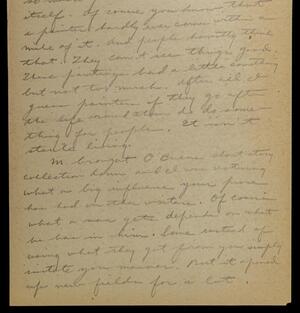 itself. Of course you know that
a painter hardly ever comes within a
mile of it. And people honestly think
that. They can't see things good.
These paintings had a little something
but not too much. After all I
guess painters if they go after
the life in will do some
thing for people. It isn't
stealin living.
M. brought O'Briens short story
collection down and I was noticing
what a big influence your prose
has had on other writers. Of course
what a man gets depends on what
he has in him. Some instead of
using what they get from you simply
imitate your manner. But it opened
up new fields for a lot.